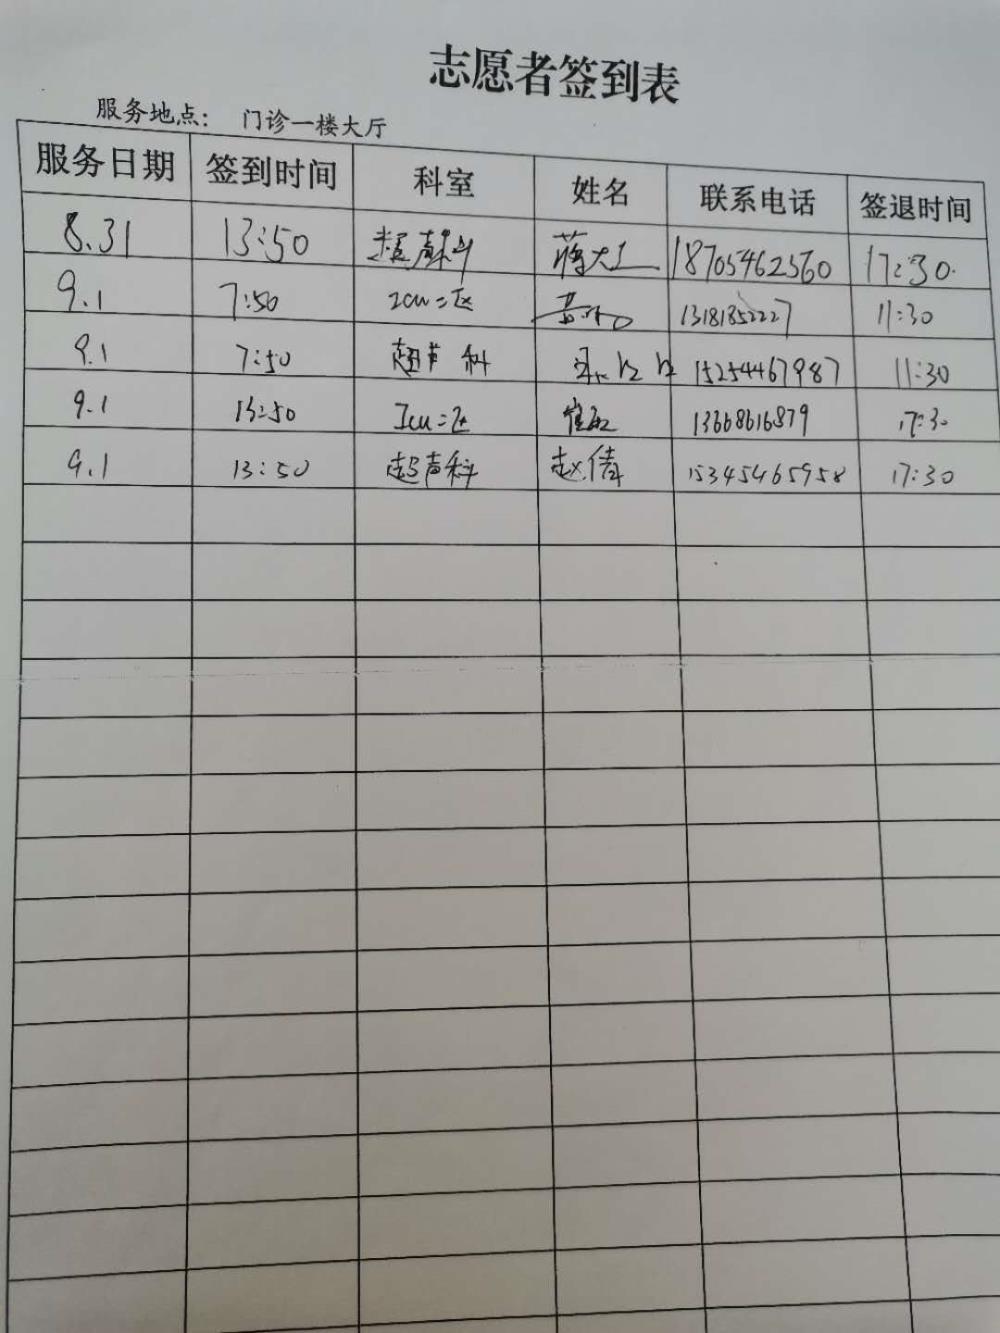 志愿者签到表
服务地点： 门诊一楼大厅
服务日期 签到时间 科室 姓名 联系电话 签退时间
8.31 13:50 超声科 蒋大工 18705462560 17:30.
9.1 7:50 ICU二区 13181352227 11:30
9.1 7:50 超声科 15254467987 11:30
9.1 13:50 Icu二区 13668616879 17:30
9.1 13:50 超声科 赵倩 15345465958 17:30